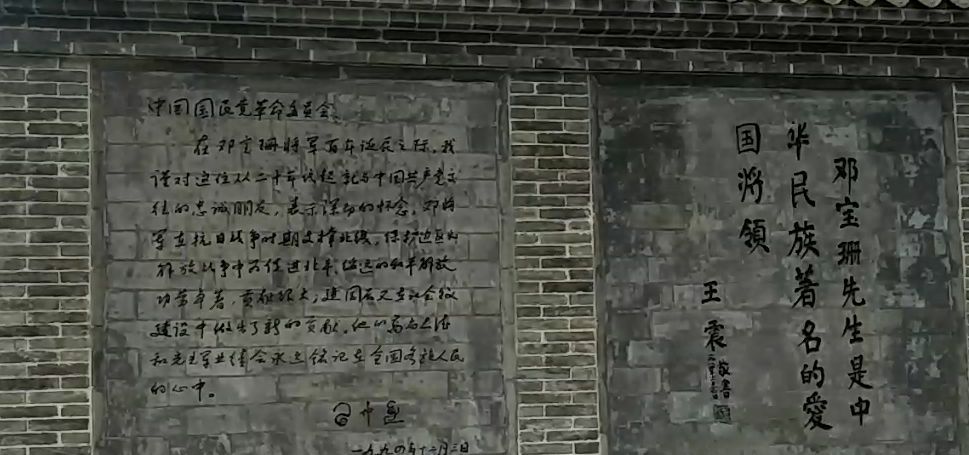 中国国民党革命委员会:
在邓宝珊将军百年诞辰之际,我
谨对这位从二十年代起就与中国共产党交
往的忠诚朋友,表示深切的怀念。邓将
军在抗日战争时期支撑北线,保护边区为
解放战争中又促进北平、绥远的和平解放
功劳卓著,贡献很大;建国后又在社会主义
建设中做出了新的贡献。他的高尚品德
和光辉业绩会永远铭记在全国各族人民
的心中。
习仲勋
一九九四年十二月三日
邓宝珊先生是中
华民族著名的愛
国將領
王震
敬書